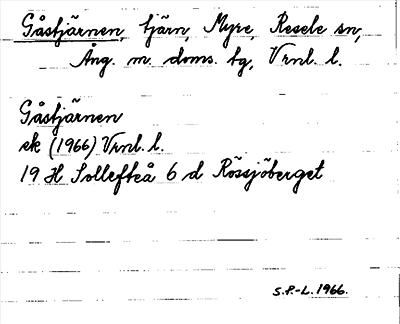 Gåstjärnen, tjärn, Myre, Resele sn,
Ång. m. doms. tg, Vrnl. l.
Gåstjärnen
ek (1966) Vrnl. l.
19 H Sollefteå 6 d Rössjöberget
S.P.-L. 1966.